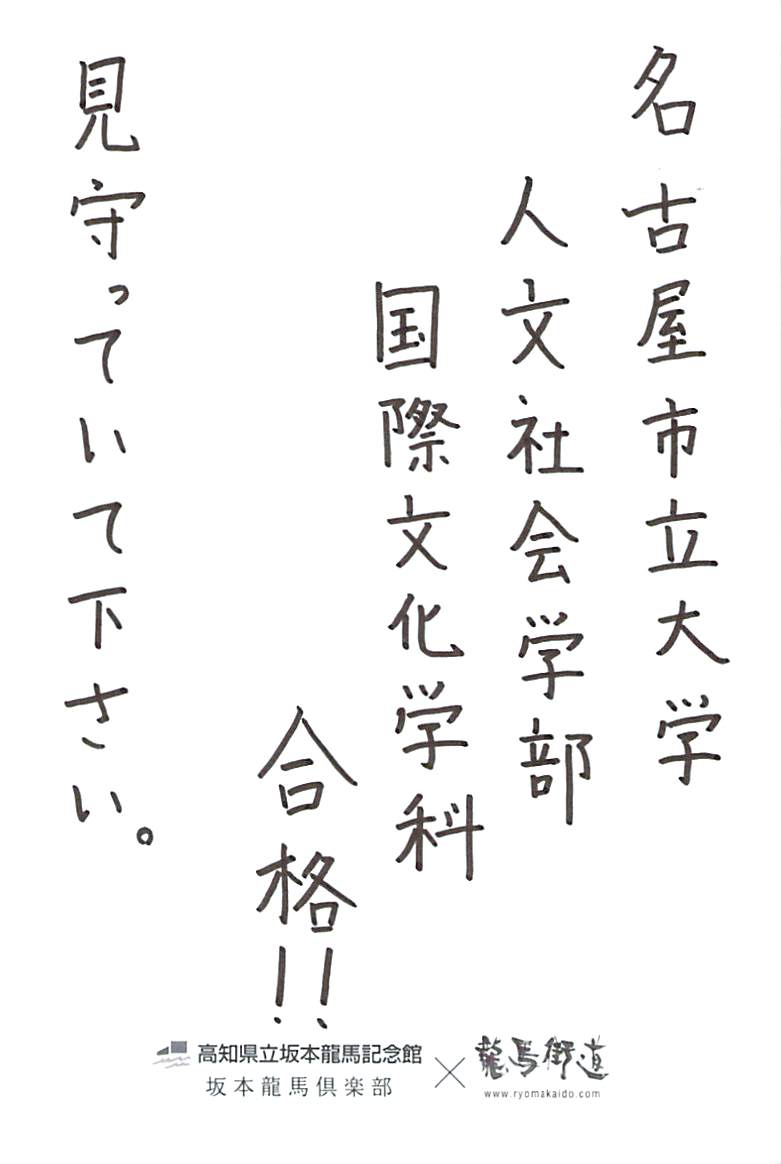 名古屋市立大学
人文社会学部
国際文化学科
合格!!
見守っていて下さい。
高知県立坂本龍馬記念館
坂本龍馬倶楽部
×
龍馬街道
www.ryomakaido.com